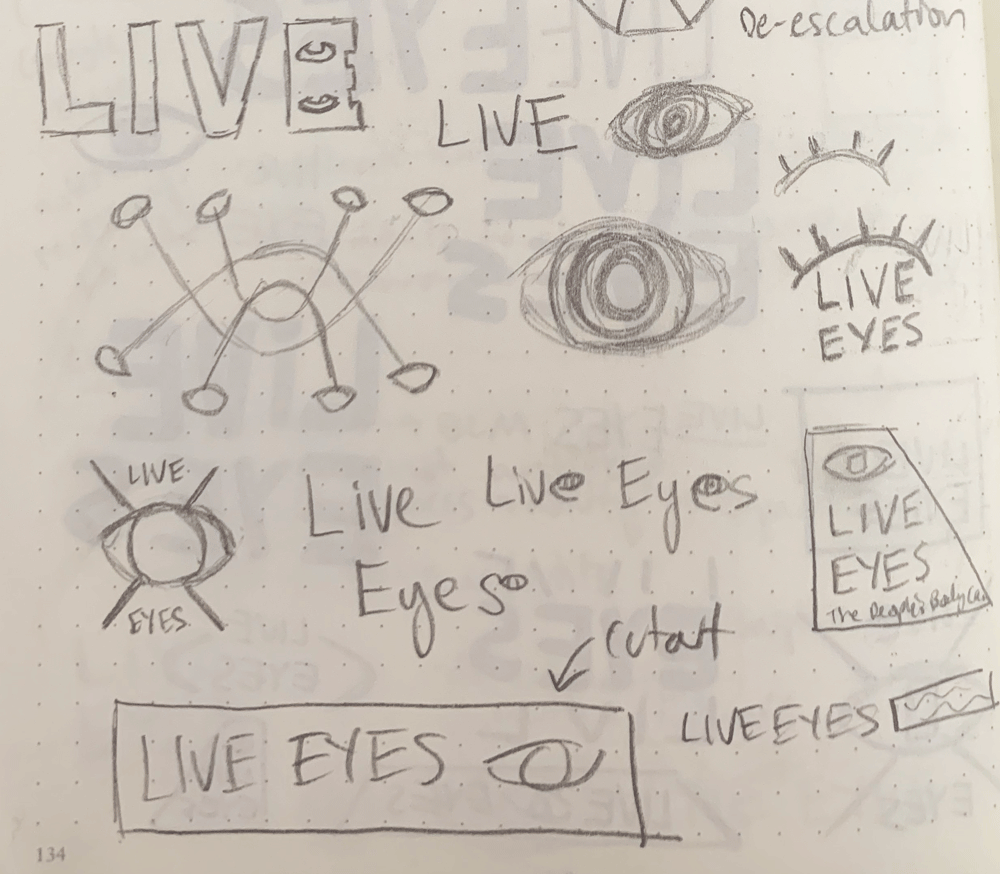 De-escalation
LIVE
LIVE
LIVE
EYES
LIVE
EYES
Live
Eyes
Live Eyes
LIVE
EYES
The People's Body Ca
cutout
LIVE EYES
LIVE EYES
134